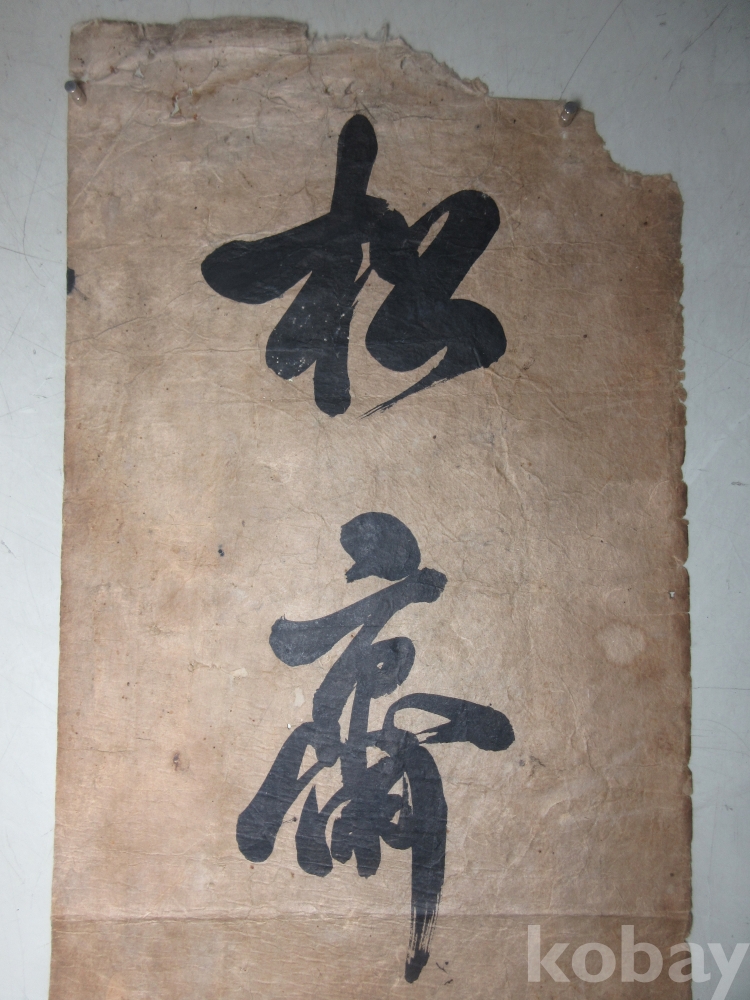 松
齋
kobay